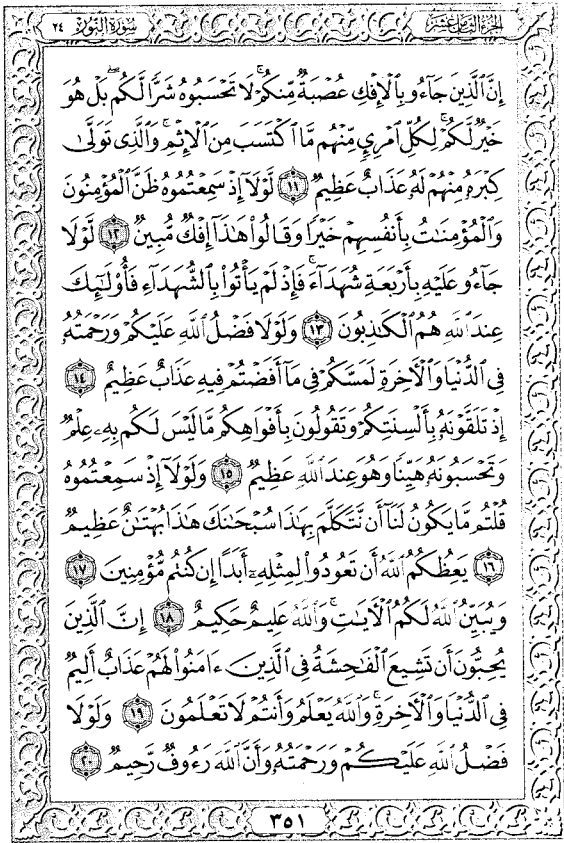 الجزء الثامن عشر
سورة النور ٢٤
إِنَّ ٱلَّذِينَ جَآءُو بِٱلْإِفْكِ عُصْبَةٌ مِّنكُمْ ۚ لَا تَحْسَبُوهُ شَرًّا لَّكُم ۖ بَلْ هُوَ
خَيْرٌ لَّكُمْ ۚ لِكُلِّ ٱمْرِئٍ مِّنْهُم مَّا ٱكْتَسَبَ مِنَ ٱلْإِثْمِ ۚ وَٱلَّذِى تَوَلَّىٰ
كِبْرَهُۥ مِنْهُمْ لَهُۥ عَذَابٌ عَظِيمٌ ١١ لَّوْلَآ إِذْ سَمِعْتُمُوهُ ظَنَّ ٱلْمُؤْمِنُونَ
وَٱلْمُؤْمِنَٰتُ بِأَنفُسِهِمْ خَيْرًا وَقَالُوا۟ هَٰذَآ إِفْكٌ مُّبِينٌ ١٢ لَّوْلَا
جَآءُو عَلَيْهِ بِأَرْبَعَةِ شُهَدَآءَ ۚ فَإِذْ لَمْ يَأْتُوا۟ بِٱلشُّهَدَآءِ فَأُو۟لَٰٓئِكَ
عِندَ ٱللَّهِ هُمُ ٱلْكَٰذِبُونَ ١٣ وَلَوْلَا فَضْلُ ٱللَّهِ عَلَيْكُمْ وَرَحْمَتُهُۥ
فِى ٱلدُّنْيَا وَٱلْءَاخِرَةِ لَمَسَّكُمْ فِى مَآ أَفَضْتُمْ فِيهِ عَذَابٌ عَظِيمٌ ١٤
إِذْ تَلَقَّوْنَهُۥ بِأَلْسِنَتِكُمْ وَتَقُولُونَ بِأَفْوَاهِكُم مَّا لَيْسَ لَكُم بِهِۦ عِلْمٌ
وَتَحْسَبُونَهُۥ هَيِّنًا وَهُوَ عِندَ ٱللَّهِ عَظِيمٌ ١٥ وَلَوْلَآ إِذْ سَمِعْتُمُوهُ
قُلْتُم مَّا يَكُونُ لَنَآ أَن نَّتَكَلَّمَ بِهَٰذَا سُبْحَٰنَكَ هَٰذَا بُهْتَٰنٌ عَظِيمٌ
١٦ يَعِظُكُمُ ٱللَّهُ أَن تَعُودُوا۟ لِمِثْلِهِۦٓ أَبَدًا إِن كُنتُم مُّؤْمِنِينَ ١٧
وَيُبَيِّنُ ٱللَّهُ لَكُمُ ٱلْءَايَٰتِ ۚ وَٱللَّهُ عَلِيمٌ حَكِيمٌ ١٨ إِنَّ ٱلَّذِينَ
يُحِبُّونَ أَن تَشِيعَ ٱلْفَٰحِشَةُ فِى ٱلَّذِينَ ءَامَنُوا۟ لَهُمْ عَذَابٌ أَلِيمٌ
فِى ٱلدُّنْيَا وَٱلْءَاخِرَةِ ۚ وَٱللَّهُ يَعْلَمُ وَأَنتُمْ لَا تَعْلَمُونَ ١٩ وَلَوْلَا
فَضْلُ ٱللَّهِ عَلَيْكُمْ وَرَحْمَتُهُۥ وَأَنَّ ٱللَّهَ رَءُوفٌ رَّحِيمٌ ٢٠
٣٥١